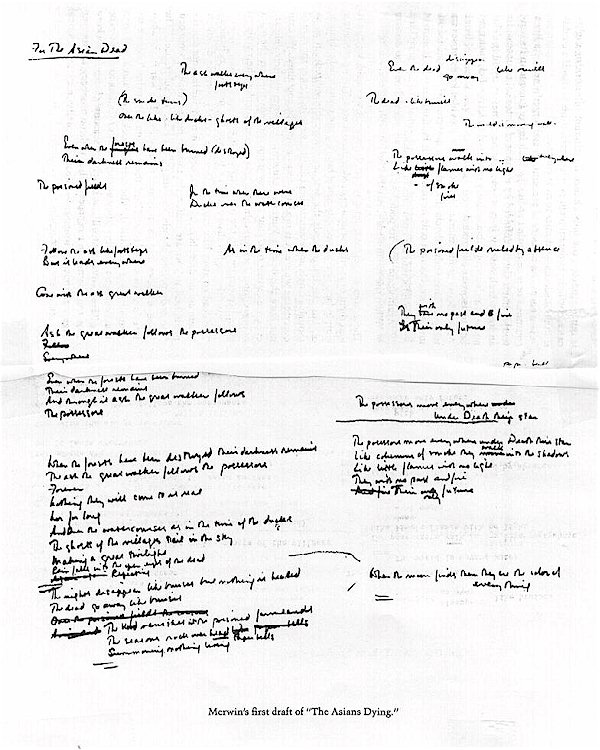 For The Asian Dead
The ash walks everywhere
footsteps
(The smoke turns)
Over the lake like ducks - ghosts of the villages
Even when the forests have been burned (destroyed)
Their darkness remains
The poisoned fields
In the time when there were
Ducks over the water courses
Follow the ash like footsteps
But it leads everywhere
As in the time when the ducks
Come with the ash great walker
Ash the great walker follows the possessors
Follow
Everywhere
Even when the forests have been burned
Their darkness remains
And through it ash the great walker follows
The possessors
When the forests have been destroyed their darkness remains
The ash the great walker follows the possessors
Forever
Nothing they will come to is real
Nor for long
And over the watercourses as in the time of the ducks
The ghosts of the villages trail in the sky
Making a great twilight
Rain falls into the open eyes of the dead
The nights disappear like bruises but nothing is healed
The dead go away like bruises
The blood vanishes into the poisoned farmlands
The seasons rock over head
bells
Summoning nothing living
Even the dead disappear like bruises
go away
The dead like bruises
The possessors walk into everywhere
Like flames with no light
of smoke
fire
The poisoned fields ruled by absence
They with no past and fire
Their only future
paper bells
The possessors move everywhere under
under Death their star
The possessors move everywhere under Death their star
Like columns of smoke they into the shadows
Like little flames with no light
They with no past and fire
And fire Their only future
only
When the moon finds them they are the color of
everything
Merwin's first draft of "The Asians Dying."